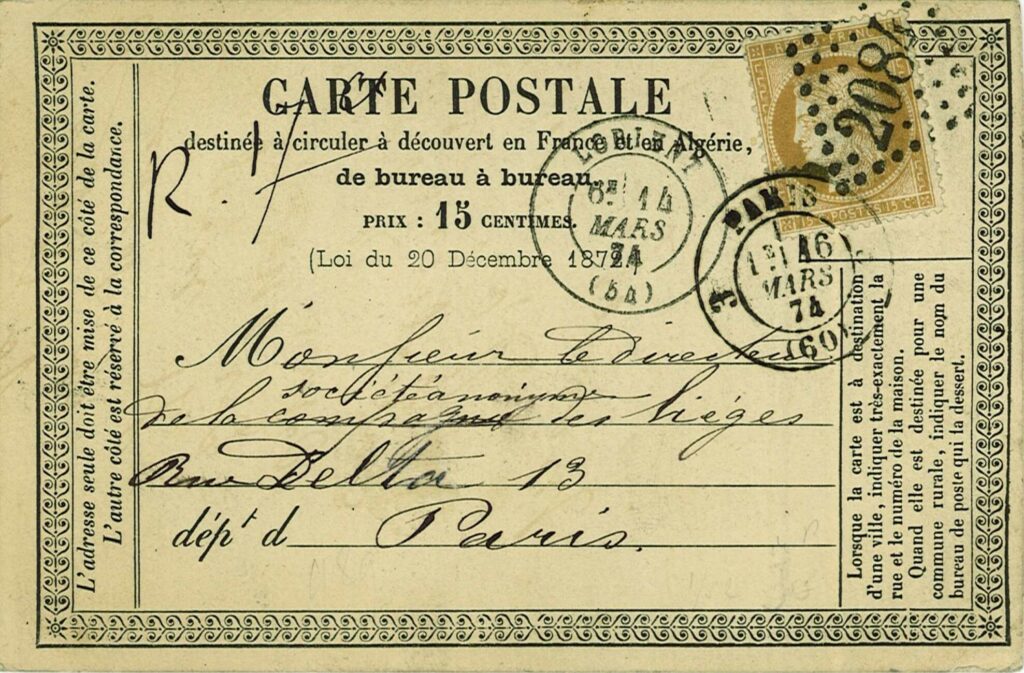 CARTE POSTALE
destinée à circuler à découvert en France et en Algérie,
de bureau à bureau.
PRIX : 15 CENTIMES.
(Loi du 20 Décembre 1872)
R. 17
2084
POSTES 15 C
6E 14
MARS
74
(54)
PARIS
1E 16
MARS
74
(60)
3
L'adresse seule doit être mise de ce côté de la carte.
L'autre côté est réservé à la correspondance.
Monsieur le Directeur
société anonyme
de la compagnie des lièges
Rue Delta 13
dépt d Paris.
Lorsque la carte est à destination
d'une ville, indiquer très-exactement la
rue et le numéro de la maison.
Quand elle est destinée pour une
commune rurale, indiquer le nom du
bureau de poste qui la dessert.